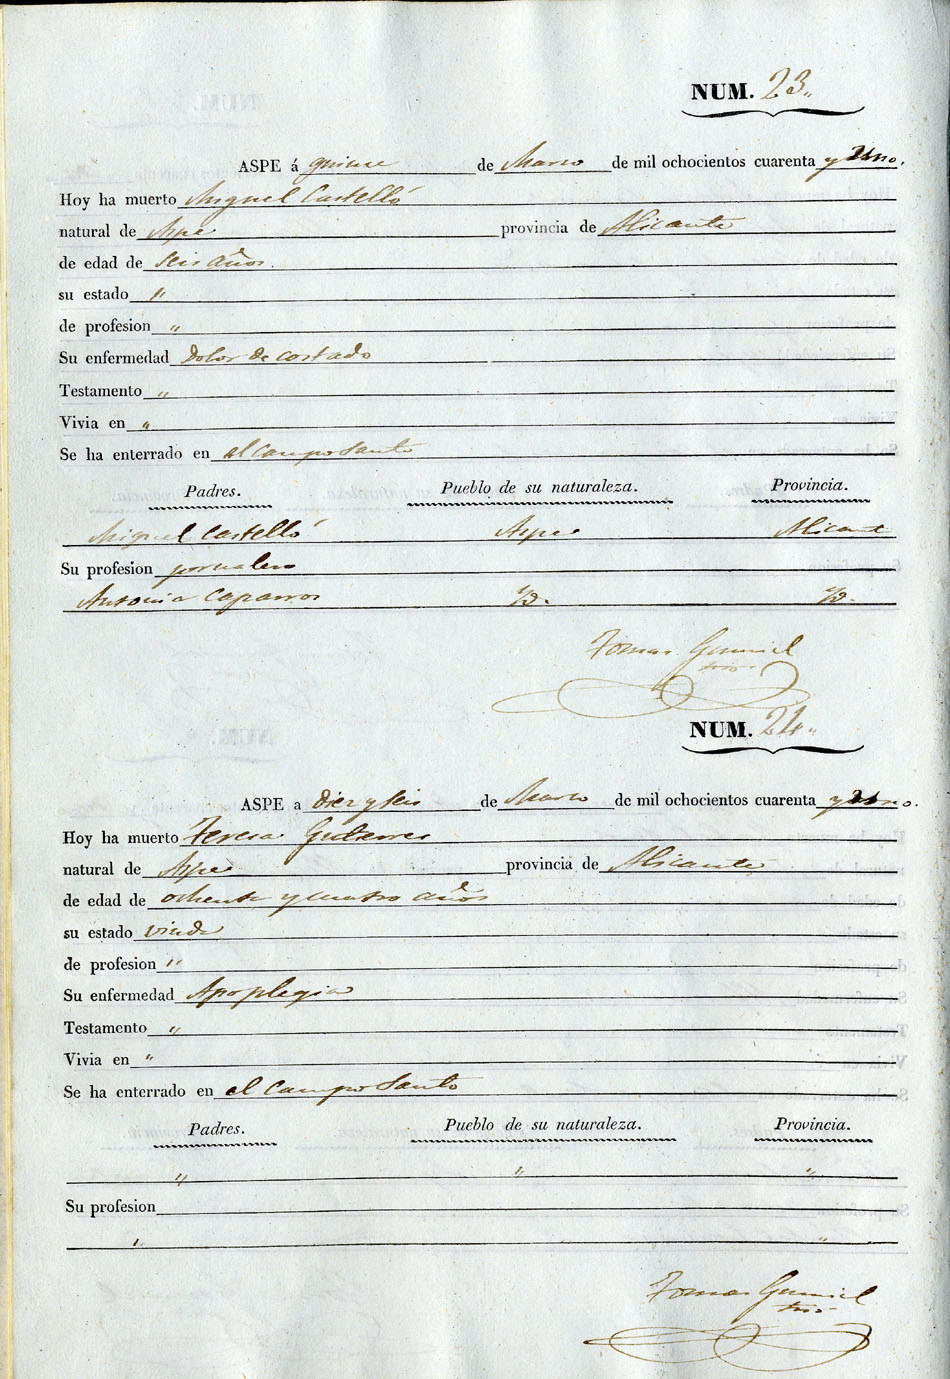 NUM. 23„
ASPE á quinse de Marzo de mil ochocientos cuarenta y Uno.
Hoy ha muerto Miguel Castelló
natural de Aspe provincia de Alicante
de edad de seis años.
su estado „
de profesion „
Su enfermedad Dolor de costado
Testamento „
Vivia en „
Se ha enterrado en el Campo Santo
Padres. Pueblo de su naturaleza. Provincia.
Miguel Castelló Aspe Alicante
Su profesion jornalero
Antonia Caparros Yd. Yd.
Tomas Gumiel
NUM. 24„
ASPE a diez y seis de Marzo de mil ochocientos cuarenta y Uno.
Hoy ha muerto Teresa Gutierres
natural de Aspe provincia de Alicante
de edad de ochenta y cuatro años
su estado viuda
de profesion „
Su enfermedad Apoplegia
Testamento „
Vivia en „
Se ha enterrado en el Campo Santo
Padres. Pueblo de su naturaleza. Provincia.
„ „ „
Su profesion
„ „
Tomas Gumiel